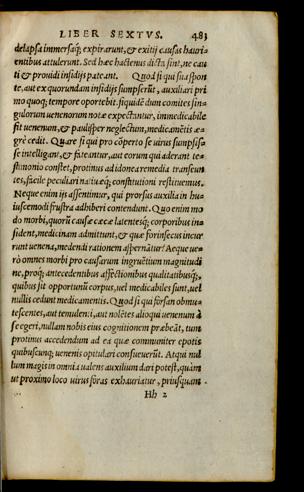 LIBER SEXTVS. 483
delapsa immersaq́; expirarunt, & exitij causas hauri⸗
entibus attulerunt. Sed hæc hactenus dicta sint, ne cau
ti & prouidi insidijs pateant. Quod si qui sua spon
te, aut ex quorundam insidijs sumpserūt, auxiliari pri
mo quoq; tempore oportebit. siquidē dum comites sin⸗
gulorum uenenorum notæ expectantur, immedicabile
fit uenenum, & paulisper neglectum, medicamētis æ⸗
grè cedit. Quare si qui pro cōperto se uirus sumpsis⸗
se intelligant, & fateantur, aut eorum qui aderant te⸗
stimonio constet, protinus ad idonea remedia transeun
tes, facile peculiari natiuæq; constitutioni restituemus.
Neque enim ijs assentimur, qui prorsus auxilia in hu⸗
iuscemodi frustra adhiberi contendunt. Quo enim mo
do morbi, quorū causæ cæcæ latentesq; corporibus in⸗
sident, medicinam admittunt, & quæ forinsecus incur
runt uenena, medendi rationem aspernātur? Aeque ue⸗
rò omnes morbi pro causarum ingruētium magnitudi
ne, proq́; antecedentibus affectionibus qualitatibusq́;,
quibus fit opportunū corpus, uel medicabiles sunt, uel
nullis cedunt medicamentis. Quod si qui forsan obmu⸗
tescentes, aut temulenti, aut nolētes alioqui uenenum à
se egeri, nullam nobis eius cognitionem præbeāt, tum
protinus accedendum ad ea quæ communiter epotis
quibuscunq; uenenis opitulari consueuerūt. Atqui nul
lum magis in omnia ualens auxilium dari potest, quàm
ut proximo loco uirus foras exhauriatur, priusquam
Hh 2